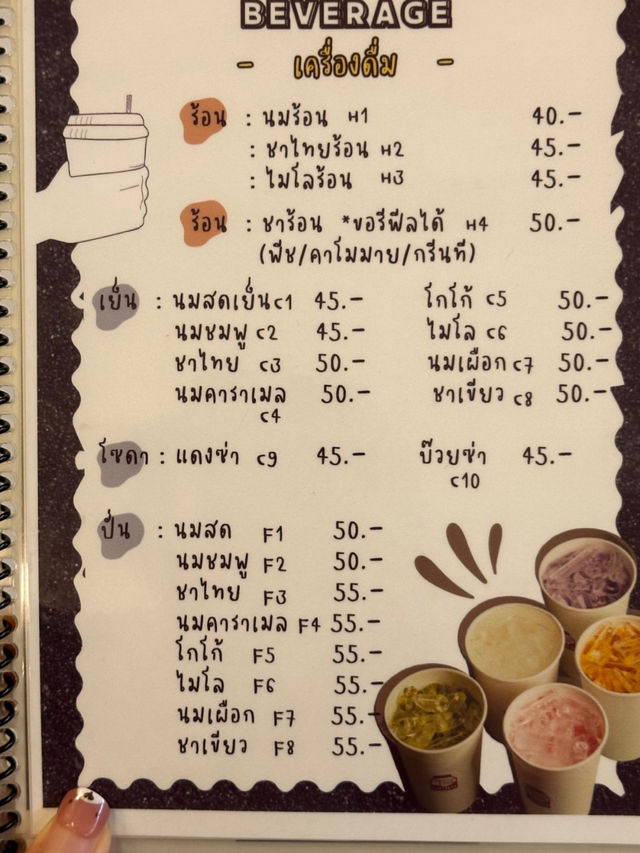 BEVERAGE
- เครื่องดื่ม -
ร้อน : นมร้อน H1 40.-
: ชาไทยร้อน H2 45.-
: ไมโลร้อน H3 45.-
ร้อน : ชาร้อน *ขอรีฟีลได้ H4 50.-
(พีช/คาโมมาย/กรีนที)
เย็น : นมสดเย็น C1 45.- โกโก้ C5 50.-
นมชมพู C2 45.- ไมโล C6 50.-
ชาไทย C3 50.- นมเผือก C7 50.-
นมคาราเมล 50.- ชาเขียว C8 50.-
C4
โซดา : แดงซ่า C9 45.- บ๊วยซ่า 45.-
C10
ปั่น : นมสด F1 50.-
นมชมพู F2 50.-
ชาไทย F3 55.-
นมคาราเมล F4 55.-
โกโก้ F5 55.-
ไมโล F6 55.-
นมเผือก F7 55.-
ชาเขียว F8 55.-